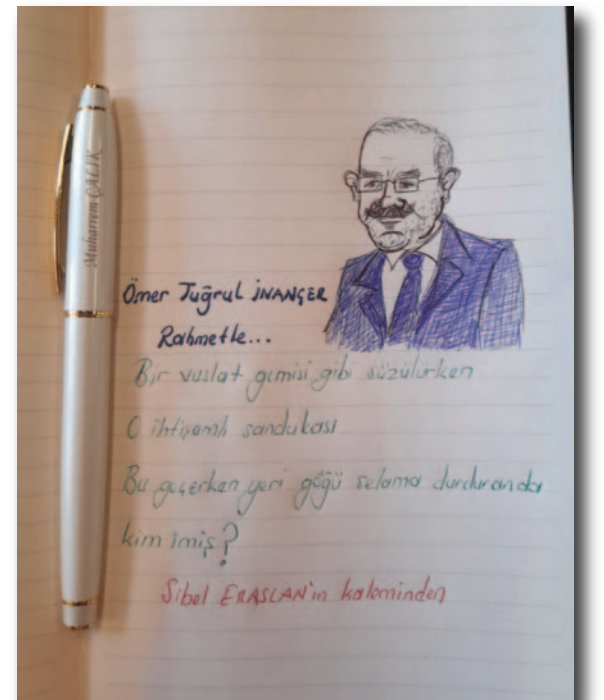 Muharrem ÇALIK
Ömer Tuğrul İNANÇER
Rahmetle...
Bir vuslat gemisi gibi süzülürken
O ihtişamlı sandukası
Bu geçerken yeri göğü selama durduranda
kim imiş?
Sibel ERASLAN'ın kaleminden